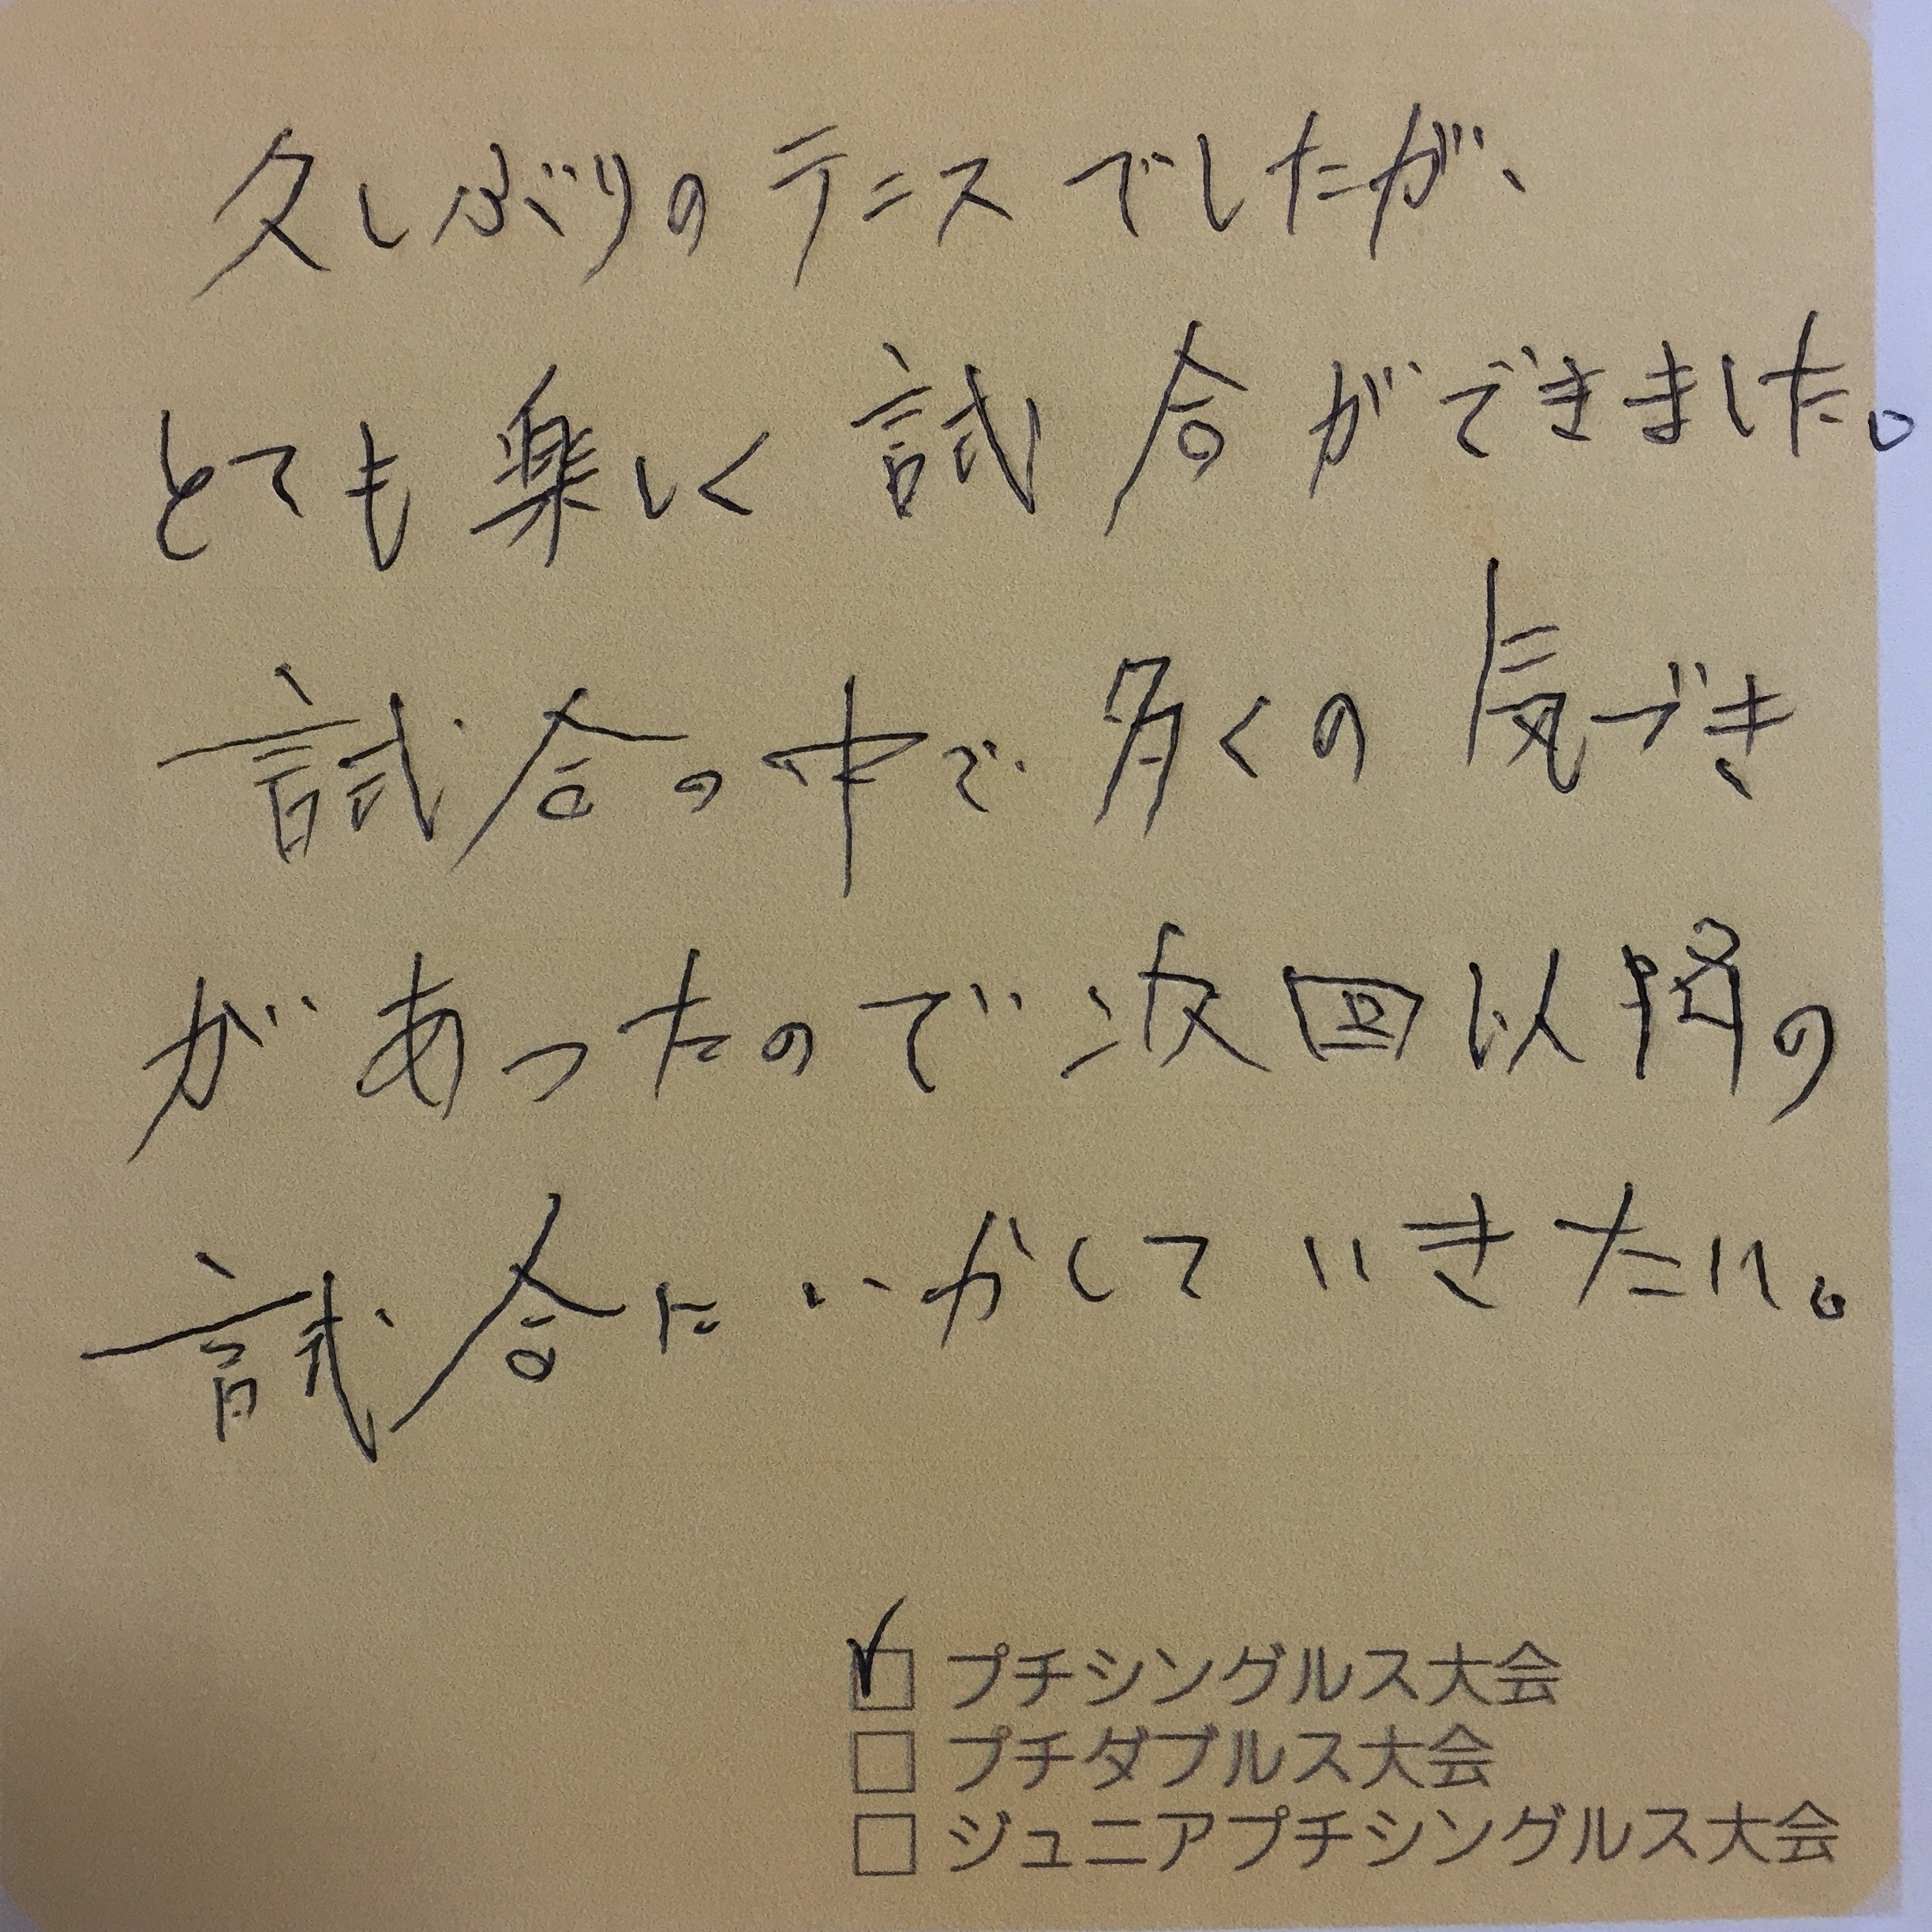 久しぶりのテニスでしたが、
とても楽しく試合ができました。
試合の中で多くの気づき
があったので次回以降の
試合にいかしていきたい。
☑ プチシングルス大会
□ プチダブルス大会
□ ジュニアプチシングルス大会